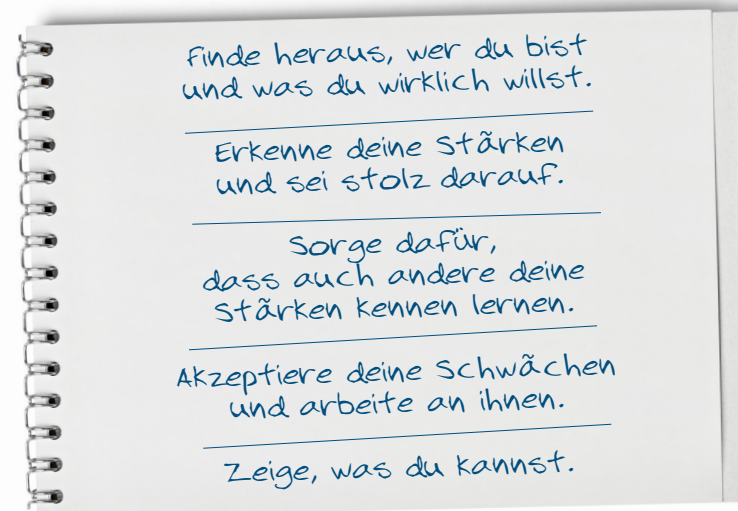 Finde heraus, wer du bist
und was du wirklich willst.
Erkenne deine Stãrken
und sei stolz darauf.
Sorge dafür,
dass auch andere deine
Stãrken kennen lernen.
Akzeptiere deine Schwãchen
und arbeite an ihnen.
Zeige, was du kannst.